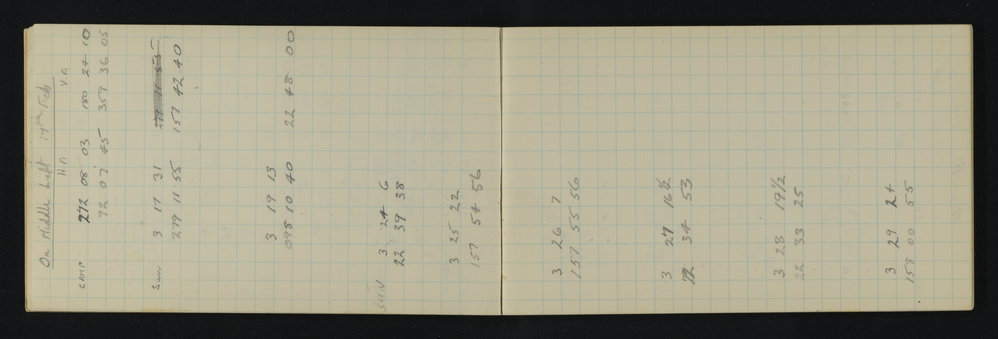 On Middle Left 17th Feb
H A V.A
CAMP 272 08 03 180 24 10
92 07 45 359 36 05
Sun 3 17 31
279 11 55 157 42 40
3 19 13
098 10 40 22 48 00
SUN 3 24 6
22 39 38
3 25 22
157 54 56
3 26 7
157 55 56
3 27 16½
22 34 53
3 28 19½
22 33 25
3 29 24
158 00 55